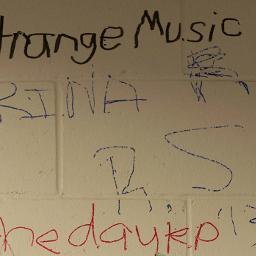 trange Music
RINA
R S
hedaykp '13